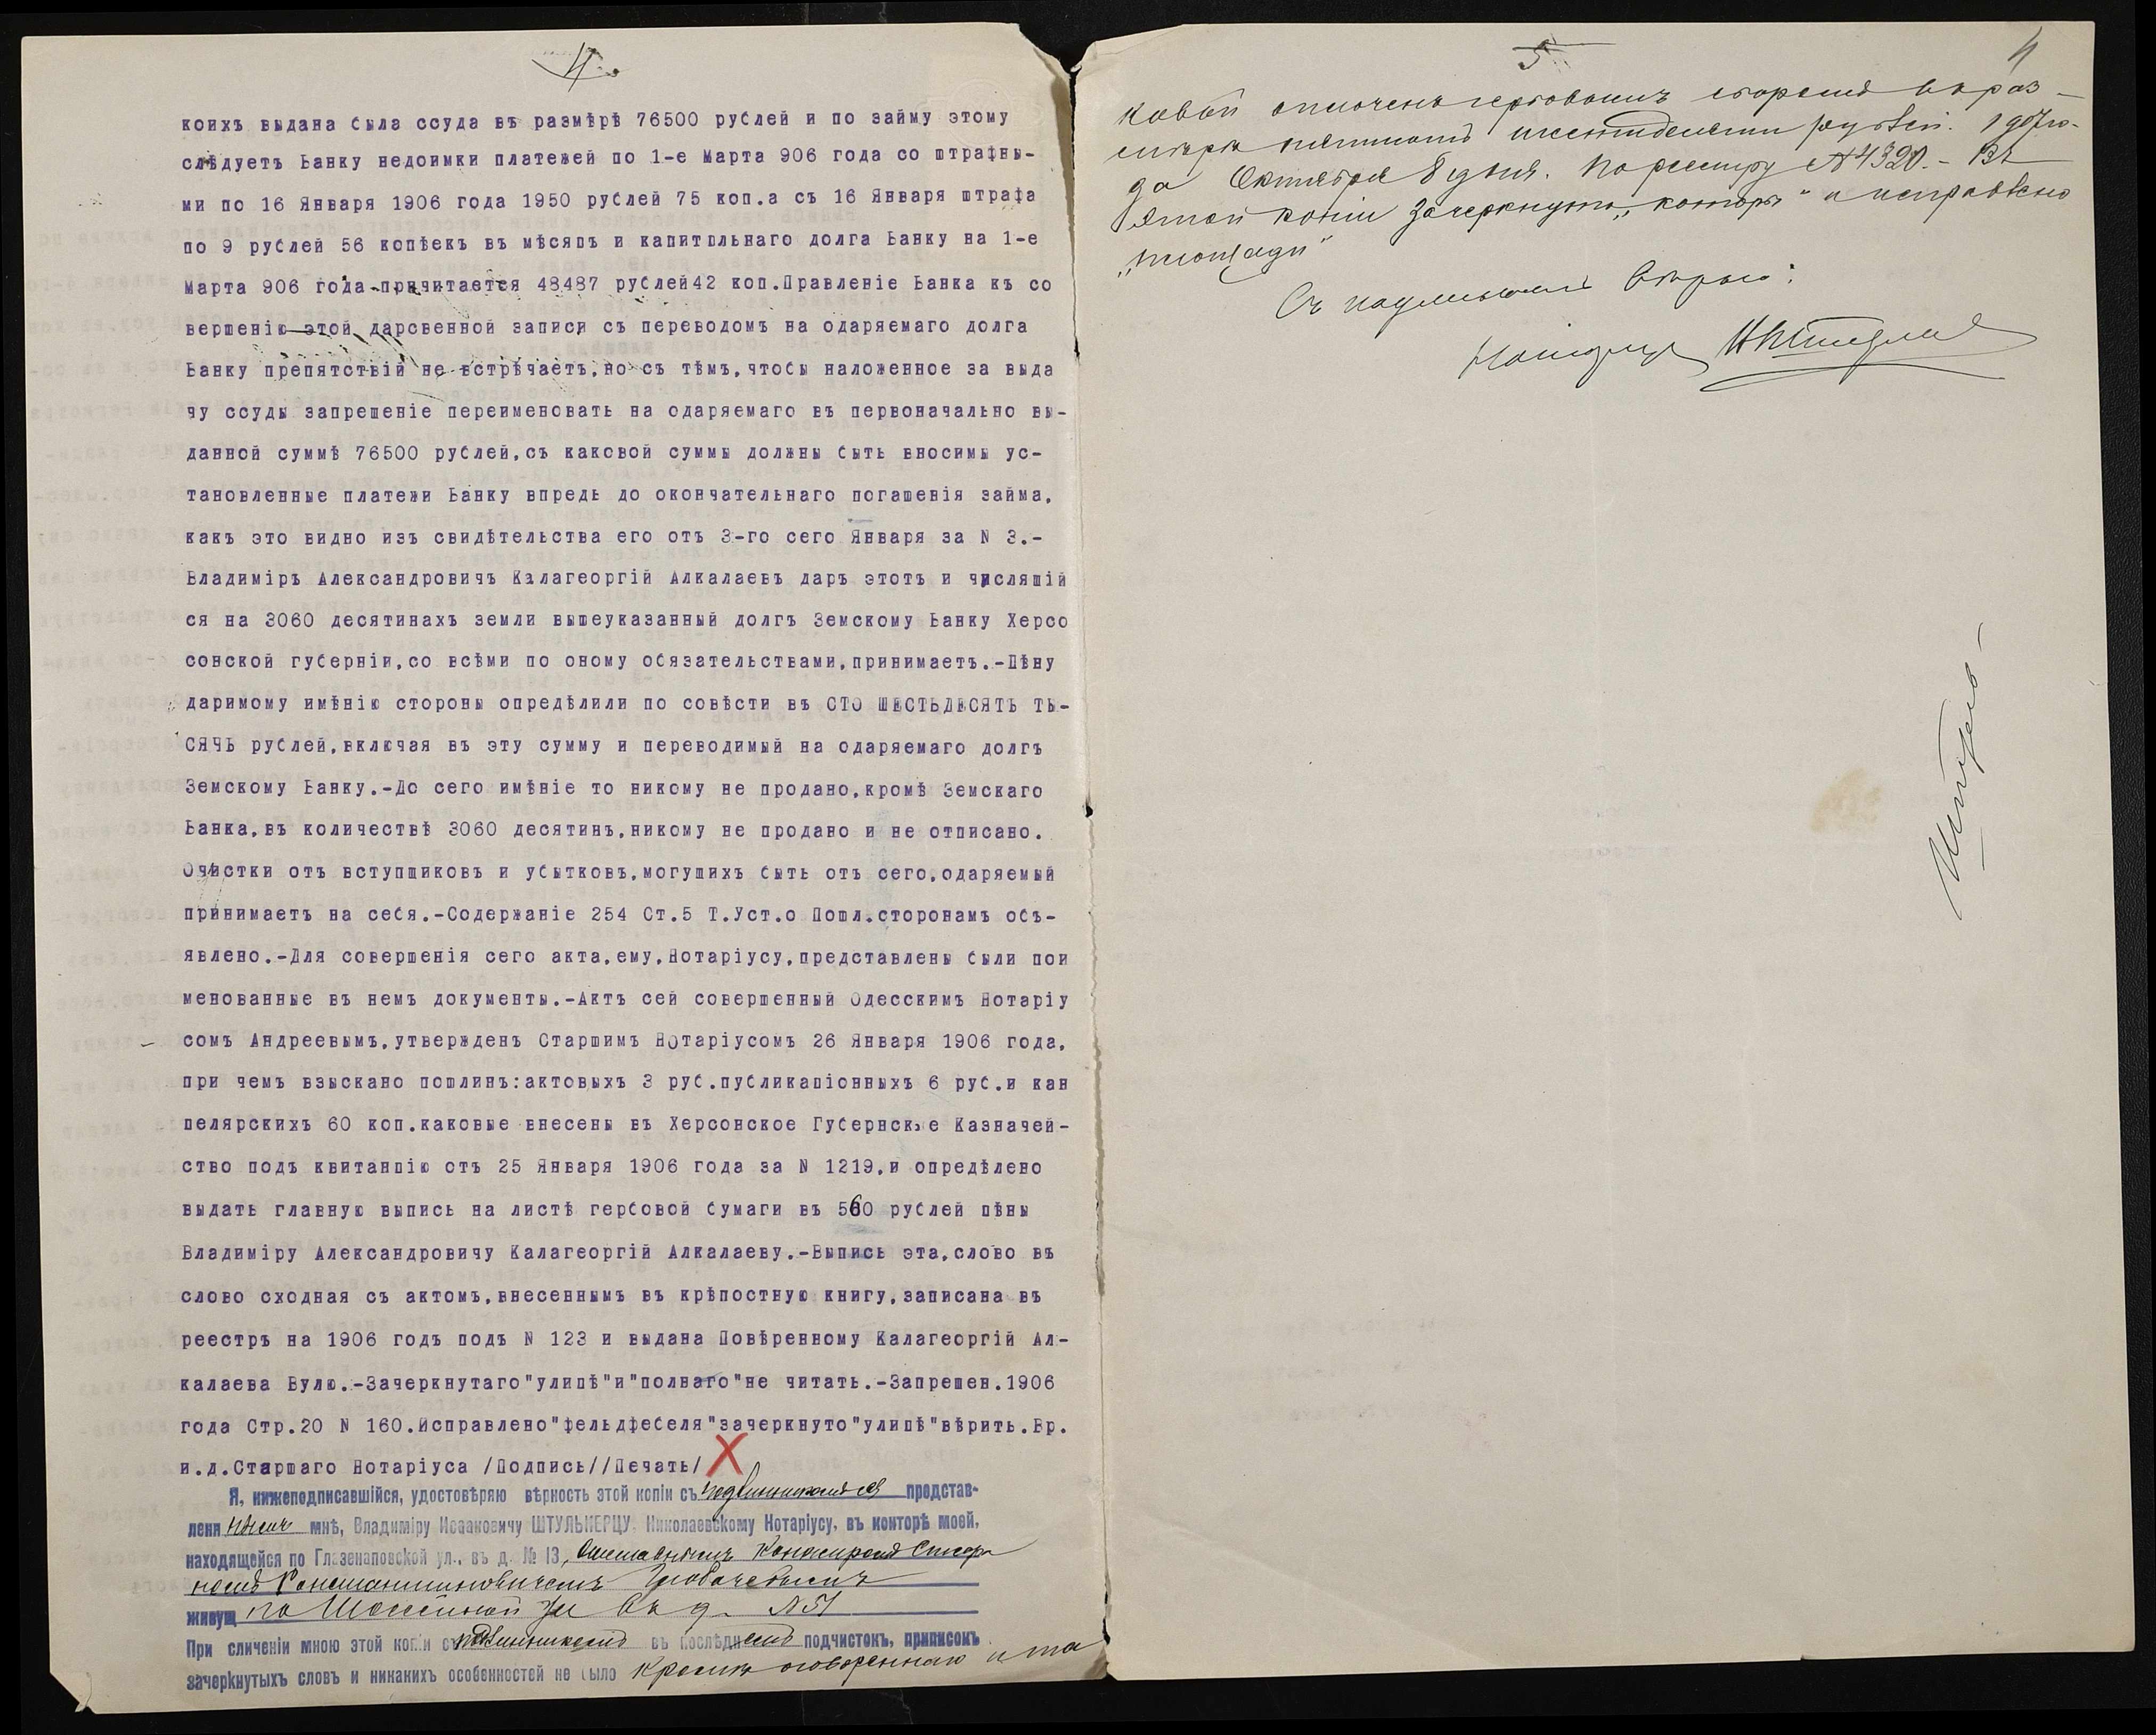 4.
коихъ выдана была ссуда въ размѣрѣ 76500 рублей и по займу этому
слѣдуетъ Банку недоимки платежей по 1-е Марта 906 года со штрафны-
ми по 16 Января 1906 года 1950 рублей 75 коп.а съ 16 Января штрафа
по 9 рублей 56 копѣекъ въ мѣсяцъ и капитальнаго долга Банку на 1-е
Марта 906 года причитается 48487 рублей42 коп.Правленіе Банка къ со
вершенію этой дарсвенной записи съ переводомъ на одаряемаго долга
Банку препятствій не встрѣчаетъ,но съ тѣмъ,чтобы наложенное за выда
чу ссуды запрещеніе переименовать на одаряемаго въ первоначально вы-
данной суммѣ 76500 рублей,съ каковой суммы должны быть вносимы ус-
тановленные платежи Банку впредь до окончательнаго погашенія займа,
какъ это видно изъ свидѣтельства его отъ 3-го сего Января за N 3.-
Владиміръ Александровичъ Калагеоргій Алкалаевъ даръ этотъ и числящій
ся на 3060 десятинахъ земли вышеуказанный долгъ Земскому Банку Херсо
сонской губерніи,со всѣми по оному обязательствами,принимаетъ.-Цѣну
даримому имѣнію стороны опредѣлили по совѣсти въ СТО ШЕСТЬДЕСЯТЬ ТЫ-
СЯЧЬ рублей,включая въ эту сумму и переводимый на одаряемаго долгъ
Земскому Банку.-До сего имѣніе то никому не продано,кромѣ Земскаго
Банка,въ количествѣ 3060 десятинъ,никому не продано и не отписано.
Очистки отъ вступщиковъ и убытковъ,могущихъ быть отъ сего,одаряемый
принимаетъ на себя.-Содержаніе 254 Ст.5 Т.Уст.о Пошл.сторонамъ объ-
явлено.-Для совершенія сего акта,ему,Нотаріусу,представлены были пои
менованные въ немъ документы.-Актъ сей совершенный Одесскимъ Нотаріу
сомъ Андреевымъ,утвержденъ Старшимъ Нотаріусомъ 26 Января 1906 года,
при чемъ взыскано пошлинъ:актовыхъ 3 руб.публикаціонныхъ 6 руб.и кан
целярскихъ 60 коп.каковые внесены въ Херсонское Губернское Казначей-
ство подъ квитанцію отъ 25 Января 1906 года за N 1219,и опредѣлено
выдать главную выпись на листѣ гербовой бумаги въ 560 рублей цѣны
Владиміру Александровичу Калагеоргій Алкалаеву.-Выпись эта,слово въ
слово сходная съ актомъ,внесеннымъ въ крѣпостную книгу,записана въ
реестръ на 1906 годъ подъ N 123 и выдана Повѣренному Калагеоргій Ал-
калаева Вулю.-Зачеркнутаго"улицѣ"и"полнаго"не читать.-Запрещен.1906
года Стр.20 N 160.Исправлено"фельдфебеля"зачеркнуто"улицѣ"вѣрить.Вр.
и.д.Старшаго Нотаріуса /Подпись//Печать/
Я, нижеподписавшійся, удостовѣряю вѣрность этой копіи съ подлинникомъ ея представ-
леннымъ мнѣ, Владиміру Исааковичу ШТУЛЬКЕРЦУ Николаевскому Нотаріусу, въ конторѣ моей,
находящейся по Глазенаповской ул., въ д. № 13,
Константиновичемъ
живущ по въ д. № 51
При сличеніи мною этой копіи съ подлинникомъ въ послѣднемъ подчистокъ, приписокъ
зачеркнутыхъ словъ и никакихъ особенностей не было кромѣ оговореннаго и та
5 4
ковой оплоченъ гербовымъ сборомъ въ раз-
мѣрѣ пятисотъ шестидесяти рублей. 1907 го-
да Октября 8 дня. По реестру № 4320. - Въ
этой копіи зачеркнуто „конторѣ" и исправлено
„площади"
Съ подлиннымъ вѣрно:
Нотаріусъ